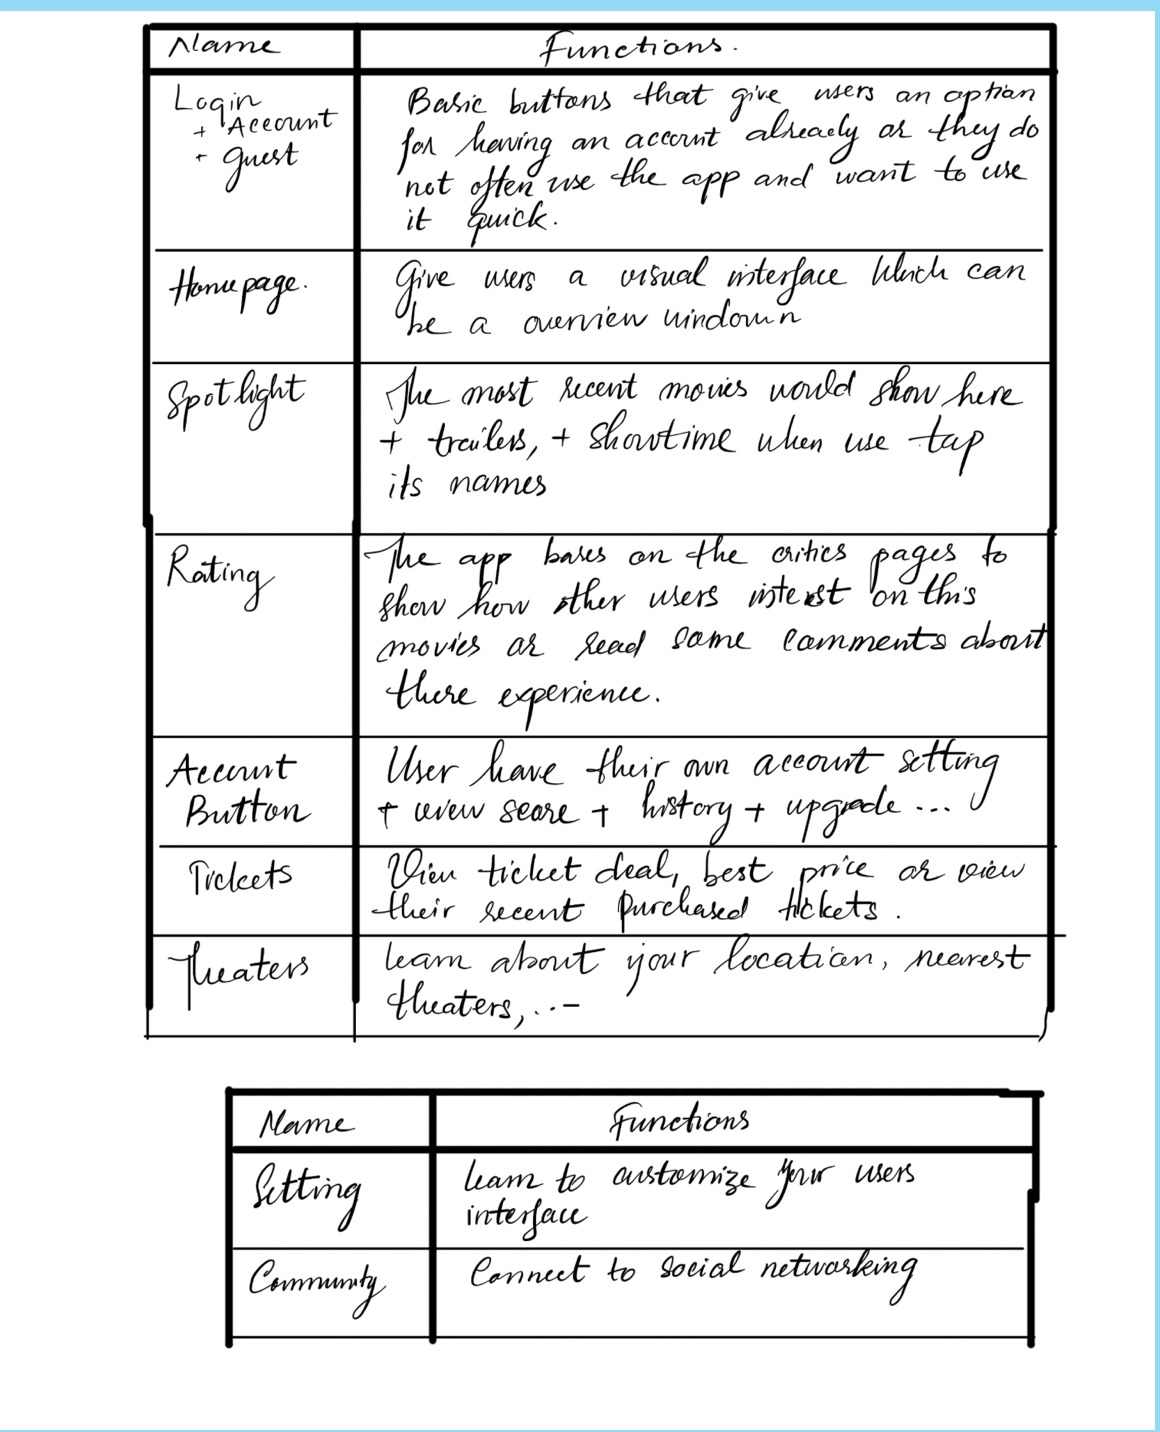 Name
Functions.
Login
+ Account
+ guest
Basic buttons that give users an option
for having an account already or they do
not often use the app and want to use
it quick.
Homepage.
Give users a visual interface which can
be a overview windown
Spotlight
The most recent movies would show here
+ trailers, + showtime when use tap
its names
Rating
The app bases on the critics pages to
show how other users interest on this
movies or read some comments about
there experience.
Account
Button
User have their own account setting
+ view score + history + upgrade ...
Tickets
View ticket deal, best price or view
their recent purchased tickets.
Theaters
learn about your location, nearest
theaters, ...
Name
Functions
Setting
learn to customize your users
interface
Community
Connect to social networking